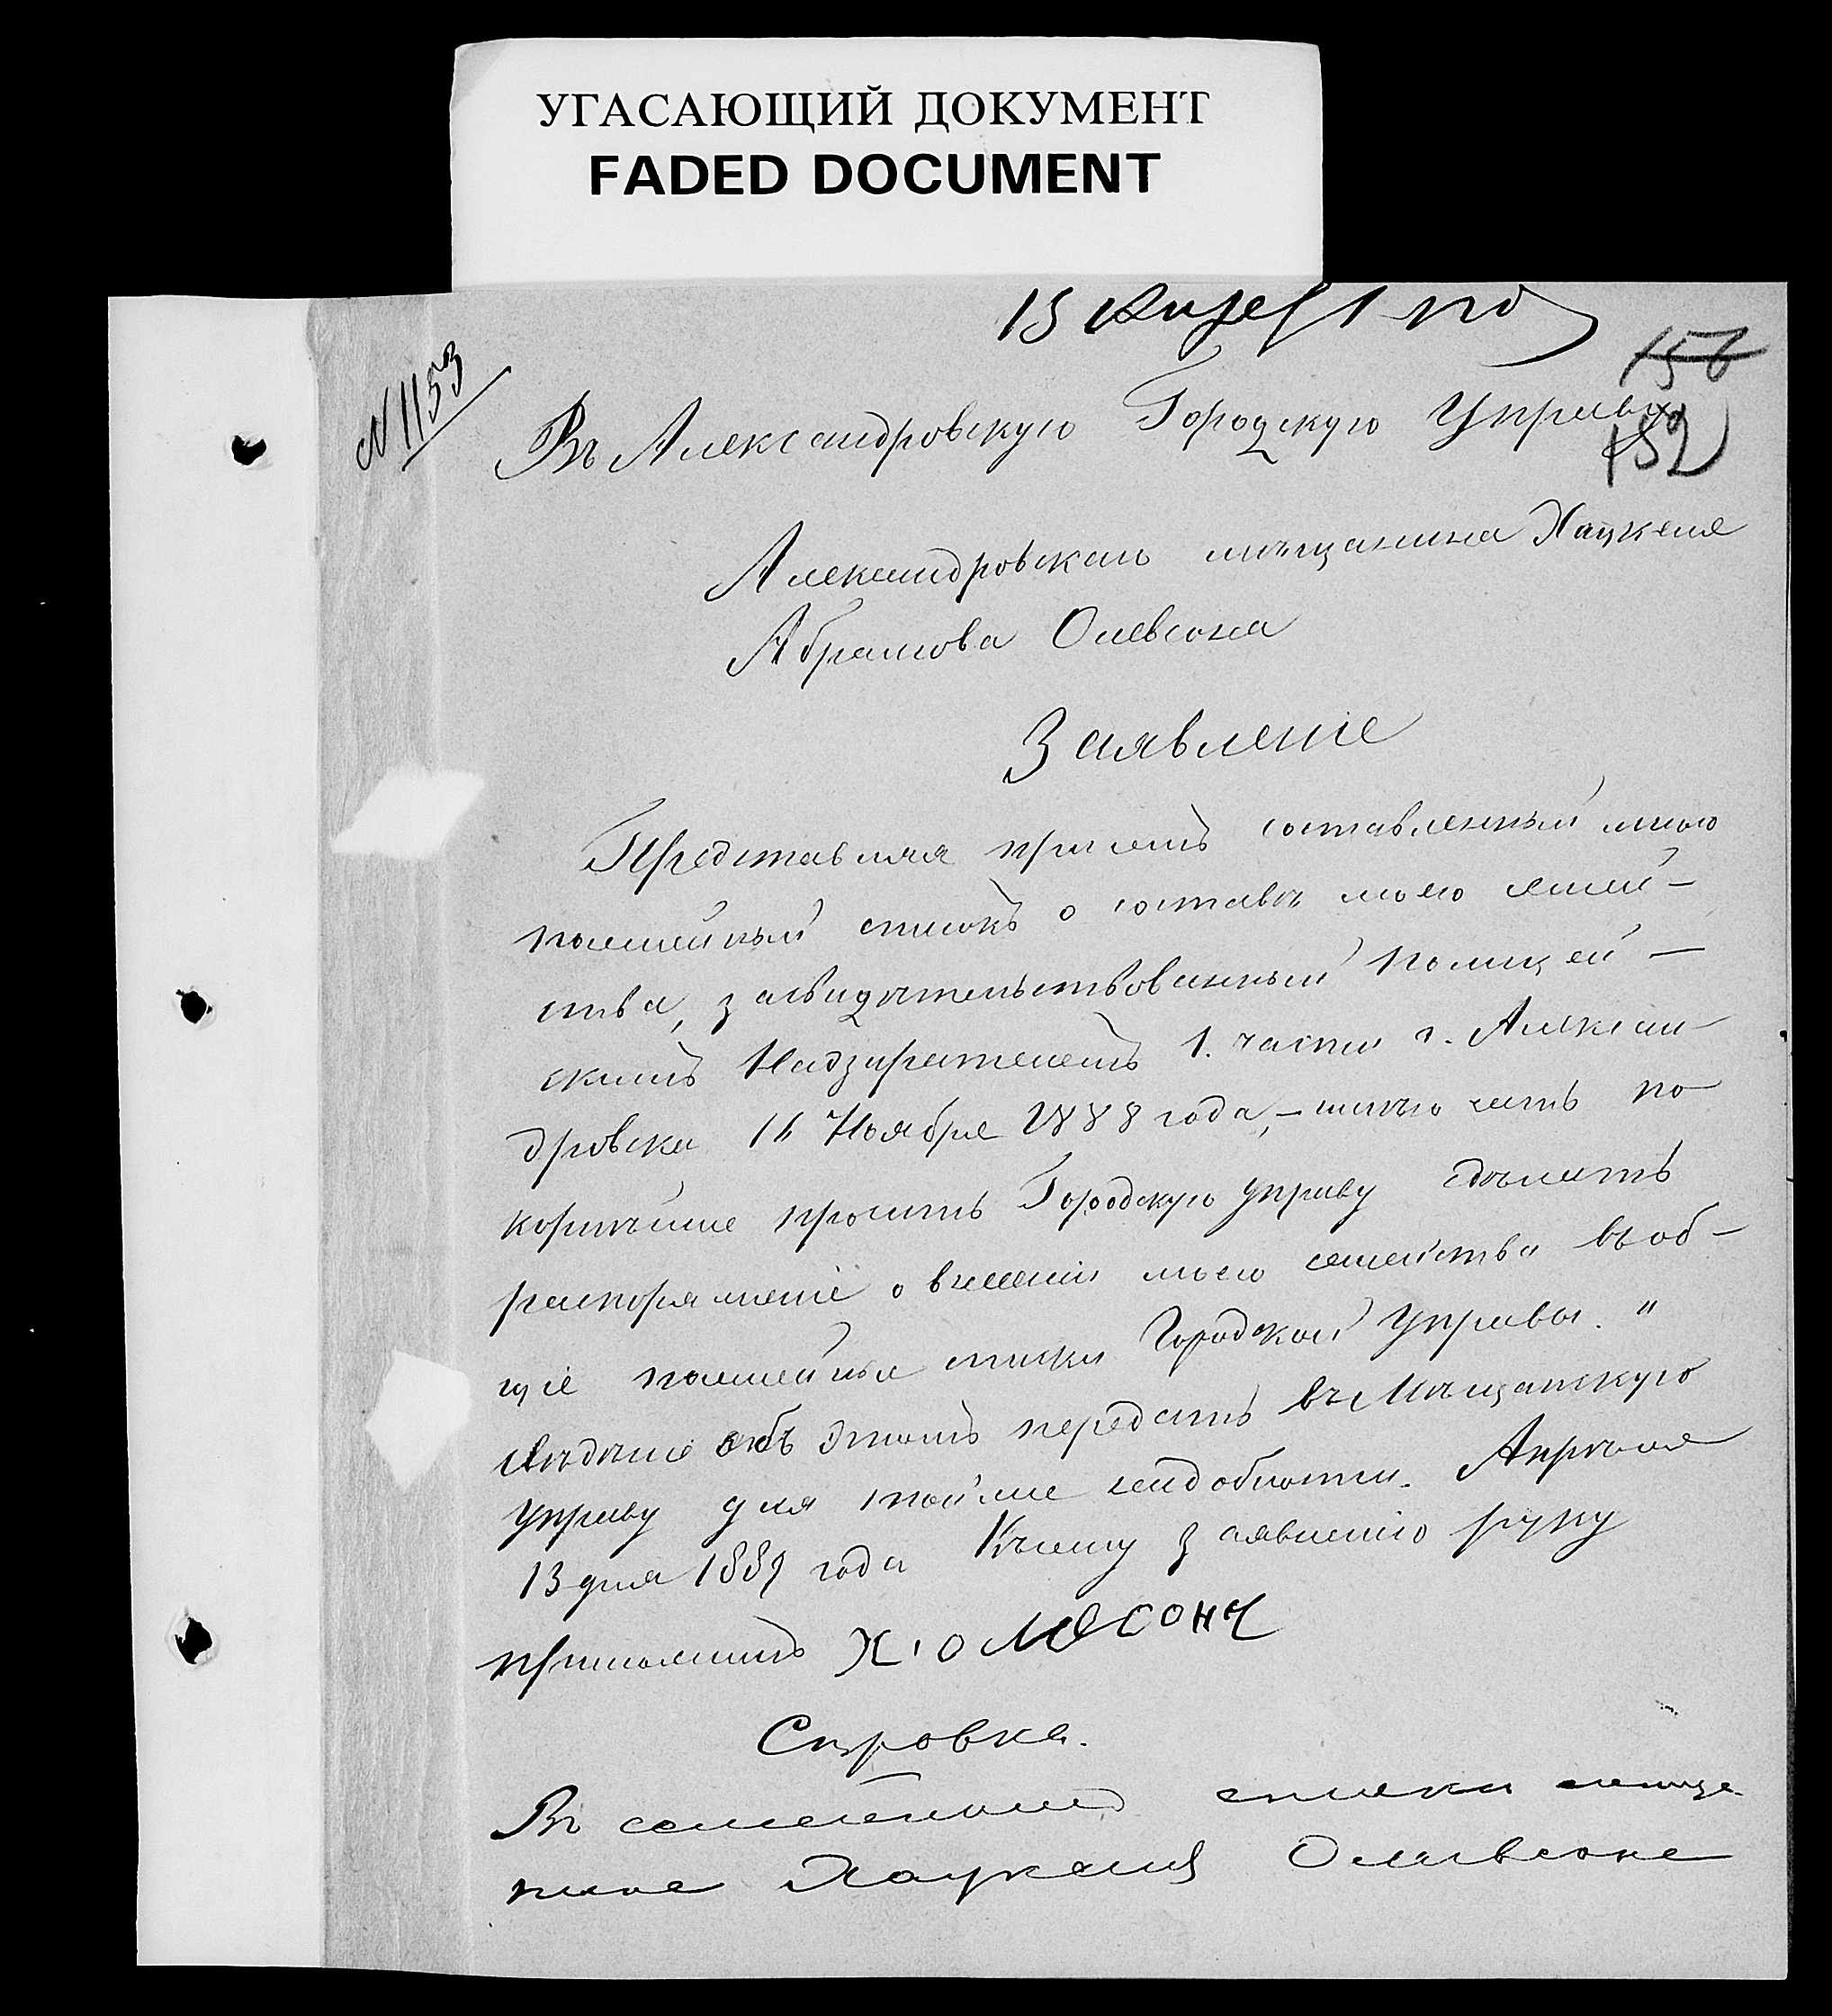 УГАСАЮЩИЙ ДОКУМЕНТ
FADED DOCUMENT
15
N 1153
156
152
Въ Александровскую Городскую Управу
Александровскаго мѣщанина Хацкеля
Абрамова Олевсона
Заявленіе
Представляя при семъ составленный мною
посемейный списокъ о составѣ моего семей-
ства, засвидѣтельствованный Полицей-
скимъ Надзирателемъ 1. части г. Алексан-
дровска 16 Ноября 1888 года, - имѣю честь по
корнѣйше просить Городскую управу сдѣлать
распоряженіе о внесеніи моего семейства въ об-
щіе посемейные списки Городской Управы. "
свѣдѣніе объ этомъ передать въ Мѣщанскую
управу для той же надобности. Апрѣля
13 дня 1889 года Къ сему заявленію руку
приложилъ Х. Олевсонъ
Справка.
Въ семейномъ списки мѣща
нина Хацкеля Олевсона